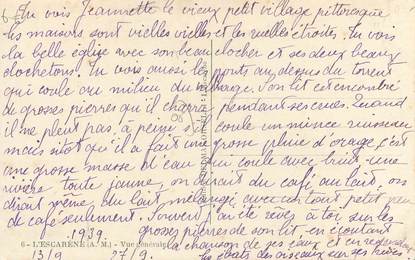 6 Tu vois Jeannette le vieux petit village pittoresque
les maisons sont vielles vielles et les ruelles étroites. Tu vois
la belle église avec son beau clocher et ses deux beaux
clochetons. Tu vois aussi les ponts au dessus du torrent
qui coule au milieu du village. Son lit est encombré
de grosses pierres qu'il charrie pendant ses crues. Quand
il ne pleut pas, à peine s'il coule un mince ruisseau
mais sitôt qu'il a fait une grosse pluie d'orage, c'est
une grosse masse d'eau qui coule avec bruit une
rivière toute jaune, on dirait du café au lait, on
dirait même du lait mélangé avec un tout petit peu
de café seulement. Souvent j'ai été rêver à toi sur les
grosses pierres de son lit, en écoutant
la chanson de ses eaux et en regardant
les ébats des oiseaux sur ses rives.
6 - L'ESCARÈNE (A. M.) - Vue générale
1939
13/9 27/9.